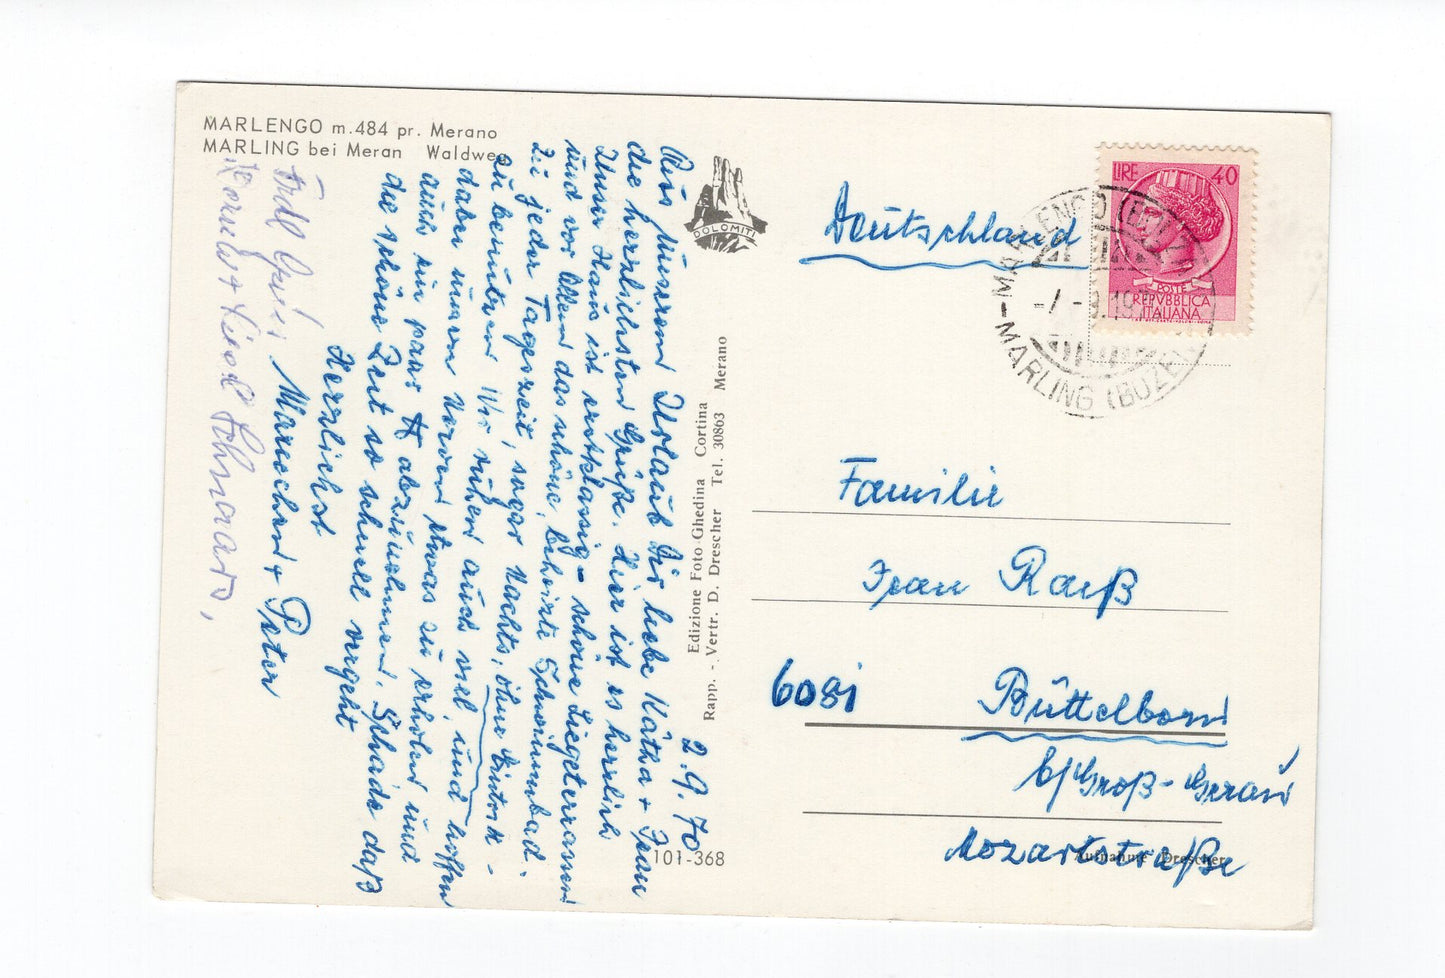 MARLENGO m.484 pr. Merano
MARLING bei Meran Waldweg
2.9.70
Aus unserem Urlaub Dir liebe Kätha + Frau
die herzlichsten Grüße. Hier ist es herrlich
Unser Haus ist erstklassig - schöne Liegeterrassen
und vor Allem das schöne, beheizte Schwimmbad.
Zu jeder Tageszeit, sogar Nachts, ohne Eintritt -
zu benutzen. Wir ruhen auch viel, und hoffen
daher unsere Nerven etwas zu erholen und
auch ein paar ℔ abzunehmen. Schade daß
die schöne Zeit so schnell vergeht
Herzlichst
Mariechen + Peter
Frdl. Grüße
DOLOMITI
Edizione Foto Ghedina Cortina
Rapp. - Vertr. D. Drescher Tel. 30863 Merano
101-368
LIRE 40
POSTE
REPVBBLICA
ITALIANA
MARLENGO (BOLZ
MARLING (BOZEN
Deutschland
Familie
Jean Raiß
6081 Büttelborn
b/Groß-Gerau
Mozartstraße
Aufnahme Drescher